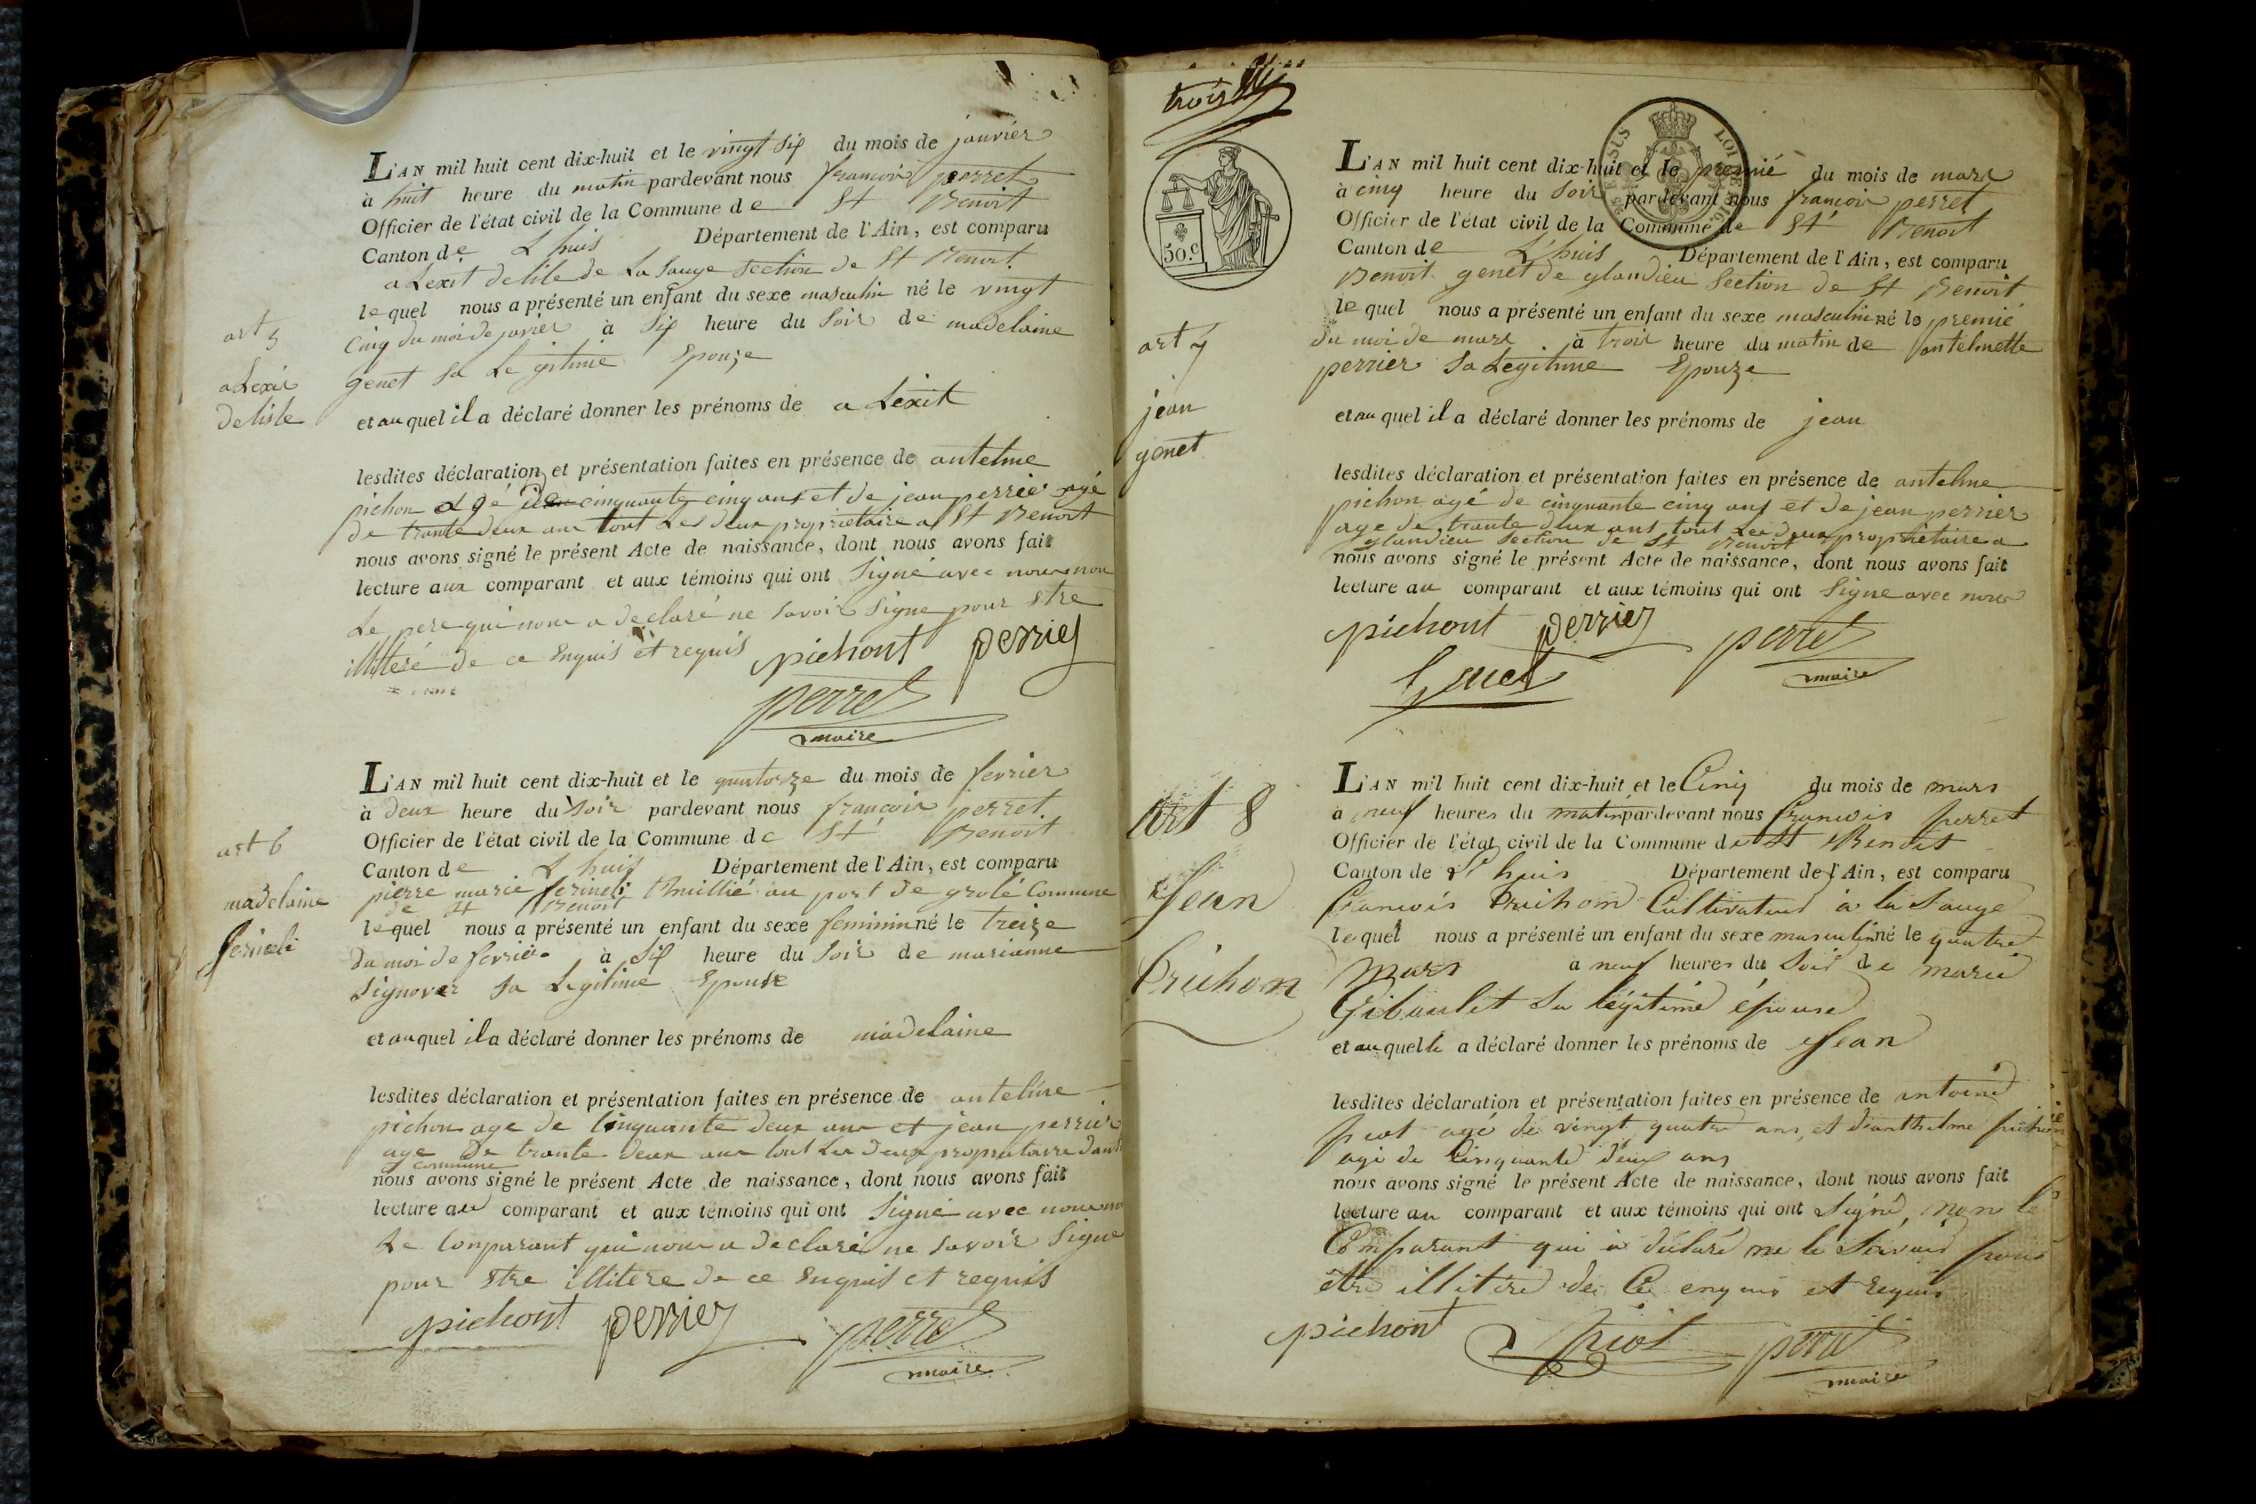 L'AN mil huit cent dix-huit et le vingt six du mois de janvier
à huit heure du matin pardevant nous françois perret
Officier de l'état civil de la Commune de St Benoit
Canton de L huis Département de l'Ain, est comparu
aLexit delile de La Sauge section de St Benoit
lequel nous a présenté un enfant du sexe masculin né le vingt
art 5
cinq du moi de janvier à six heure du soir de madelaine
aLexis
genet sa Legitime Epouze
delisle
et au quel il a déclaré donner les prénoms de a Lexit
lesdites déclaration et présentation faites en présence de antelme
pichon agé de cinquante cinq ans et de jean perrier agé
de trante deux ans tout Les deux proprietaire a St Benoit
nous avons signé le présent Acte de naissance, dont nous avons fait
lecture aux comparant et aux témoins qui ont Signé avec nous non
Le pere qui nous a declaré ne savoir signe pour Etre
de ce Enquis et requis
pichont perrier
perret
maire
L'AN mil huit cent dix-huit et le quatorze du mois de fevrier
à deux heure du soir pardevant nous françois perret
Officier de l'état civil de la Commune de St Benoit
art 6
Canton de L huis Département de l'Ain, est comparu
pierre marie au port de grolé Commune
madelaine
de St Benoit
lequel nous a présenté un enfant du sexe feminin né le treize
du moi de fevrier à six heure du soir de marianne
signover sa Legitime Epouse
et au quel il a déclaré donner les prénoms de madelaine
lesdites déclaration et présentation faites en présence de antelme
pichon age de Cinquante deux ans et jean perrier
age De trante deux ans tout Les deux proprietaire
commune
nous avons signé le présent Acte de naissance, dont nous avons fait
lecture au comparant et aux témoins qui ont Signé avec nous non
Le Comparant qui nous a declaré ne savoir Signe
pour Etre illitere de ce Enquis et requis
pichont perrier perret
maire
trois
50.c
LOI DE 1816.
L'AN mil huit cent dix-huit et le premié du mois de mars
à cinq heure du soir pardevant nous françois perret
Officier de l'état civil de la Commune de St Benoit
Canton de L'huis Département de l'Ain, est comparu
Benoit genet de glandieu Section de St Benoit
lequel nous a présenté un enfant du sexe masculin né le premié
art 7
du moi de mars à trois heure du matin de antelmette
perrier sa Legitime Epouze
jean
et au quel il a déclaré donner les prénoms de jean
genet
lesdites déclaration et présentation faites en présence de antelme
pichon agé de cinquante cinq ans et de jean perrier
age de trante deux ans tout Les deux proprietaire a
glandieu section de St Benoit
nous avons signé le présent Acte de naissance, dont nous avons fait
lecture au comparant et aux témoins qui ont Signe avec nous
pichont perrier perret
maire
Genet
L'AN mil huit cent dix-huit et le Cinq du mois de mars
à neuf heures du matin pardevant nous francois perret
art 8
Officier de l'état civil de la Commune de St Benoit
Canton de L'huis Département de l'Ain, est comparu
Jean
francois Cultivateur à la Sauge
lequel nous a présenté un enfant du sexe masculin né le quatre
mars à neuf heures du soir de marie
sa légitime épouse
et au quel il a déclaré donner les prénoms de Jean
lesdites déclaration et présentation faites en présence de antoine
piot agé de vingt quatre ans, et d'anthelme pichon
agé de Cinquante deux ans
nous avons signé le présent Acte de naissance, dont nous avons fait
lecture au comparant et aux témoins qui ont Signé, non le
Comparant qui a déclaré ne le Savoir pour
être de Ce enquis et requis
pichont piot perret
maire